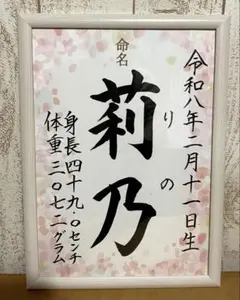 令和八年二月十一日生
命名
莉乃
りの
身長四十九.〇センチ
体重三〇七二グラム